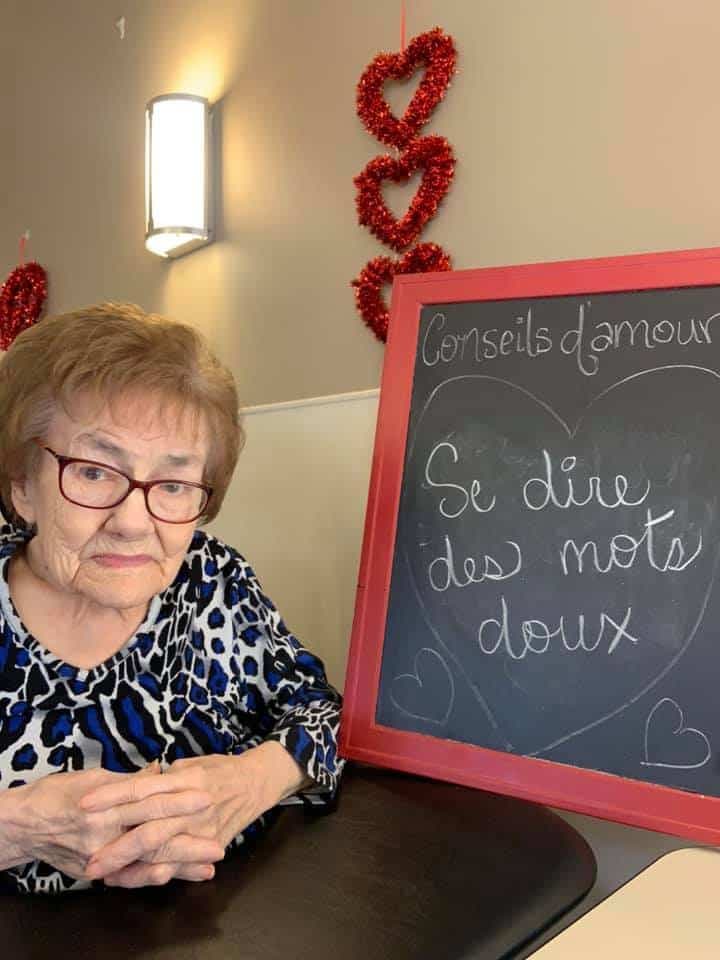 Conseils d'amour
Se dire
des mots
doux